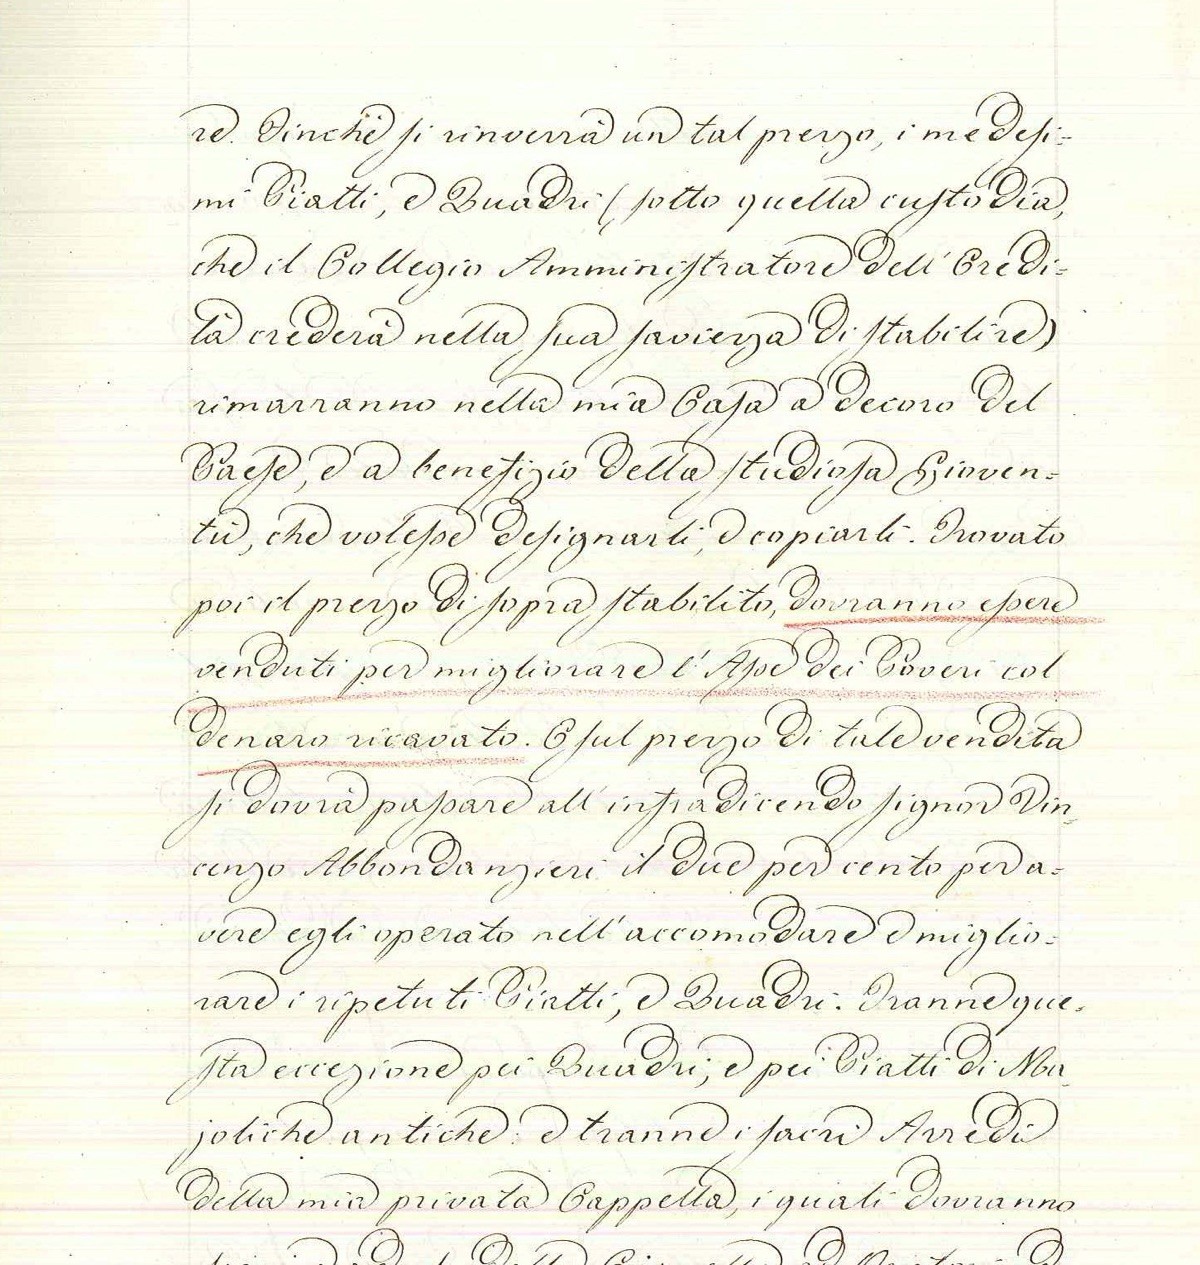 re. Finchè si rinverrà un tal prezzo, i medesi=
mi Piatti, e Quadri (sotto quella custodia,
che il Collegio Amministratore dell' Eredi=
tà crederà nella sua saviezza di stabilire)
rimarranno nella mia Casa a decoro del
Paese, e a benefizio della studiosa Gioven=
tù, che volesse designarli, e copiarli. Trovato
poi il prezzo di sopra stabilito, dovranno essere
venduti per migliorare l' Asse dei Poveri col
denaro ricavato. E sul prezzo di tale vendita
si dovrà passare all' infradicendo signor Vin=
cenzo Abbondanzieri il due per cento per a=
vere egli operato nell' accomodare e miglio=
rare i ripetuti Piatti, e Quadri. Tranne que=
sta eccezione pei Quadri, e pei Piatti di Ma=
joliche antiche: e tranne i sacri Arredi
della mia privata Cappella, i quali dovranno